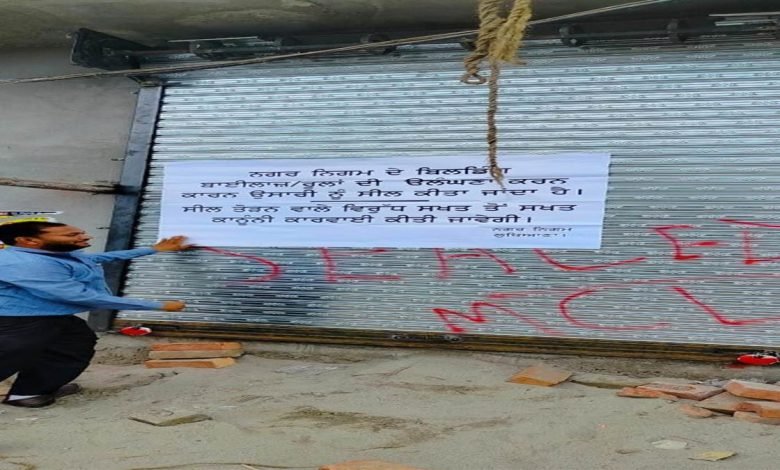 ਨਗਰ ਨਿਗਮ ਦੇ ਬਿਲਡਿੰਗ
ਬਾਈਲਾਜ਼/ਰੂਲਾਂ ਦੀ ਉਲੰਘਣਾ ਕਰਨ
ਕਾਰਨ ਉਸਾਰੀ ਨੂੰ ਸੀਲ ਕੀਤਾ ਜਾਂਦਾ ਹੈ।
ਸੀਲ ਤੋੜਨ ਵਾਲੇ ਵਿਰੁੱਧ ਸਖਤ ਤੋਂ ਸਖਤ
ਕਾਨੂੰਨੀ ਕਾਰਵਾਈ ਕੀਤੀ ਜਾਵੇਗੀ।
ਨਗਰ ਨਿਗਮ
ਲੁਧਿਆਣਾ।
SEALED
MCL